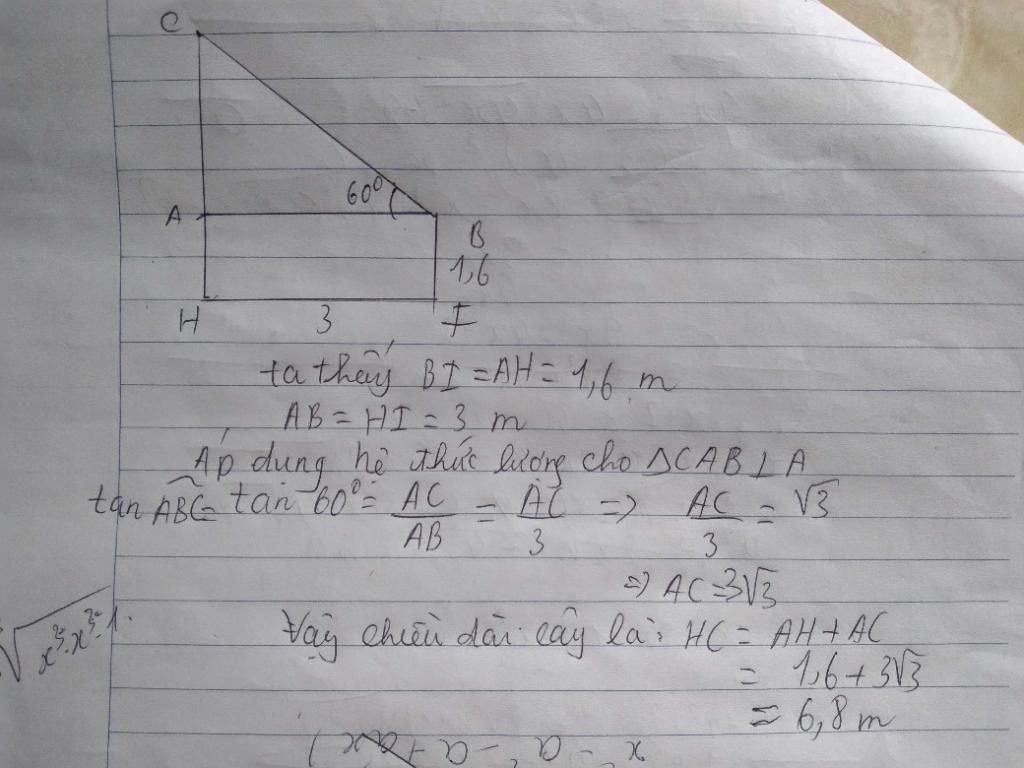 C
60⁰
A
B
1,6
H 3 I
ta thấy BI = AH = 1,6 m
AB = HI = 3 m
Áp dụng hệ thức lượng cho ΔCAB ⊥ A
tan ABC = tan 60⁰ = AC/AB = AC/3 => AC/3 = √3
=> AC = 3√3
Vậy chiều dài cây là: HC = AH + AC
= 1,6 + 3√3
= 6,8 m